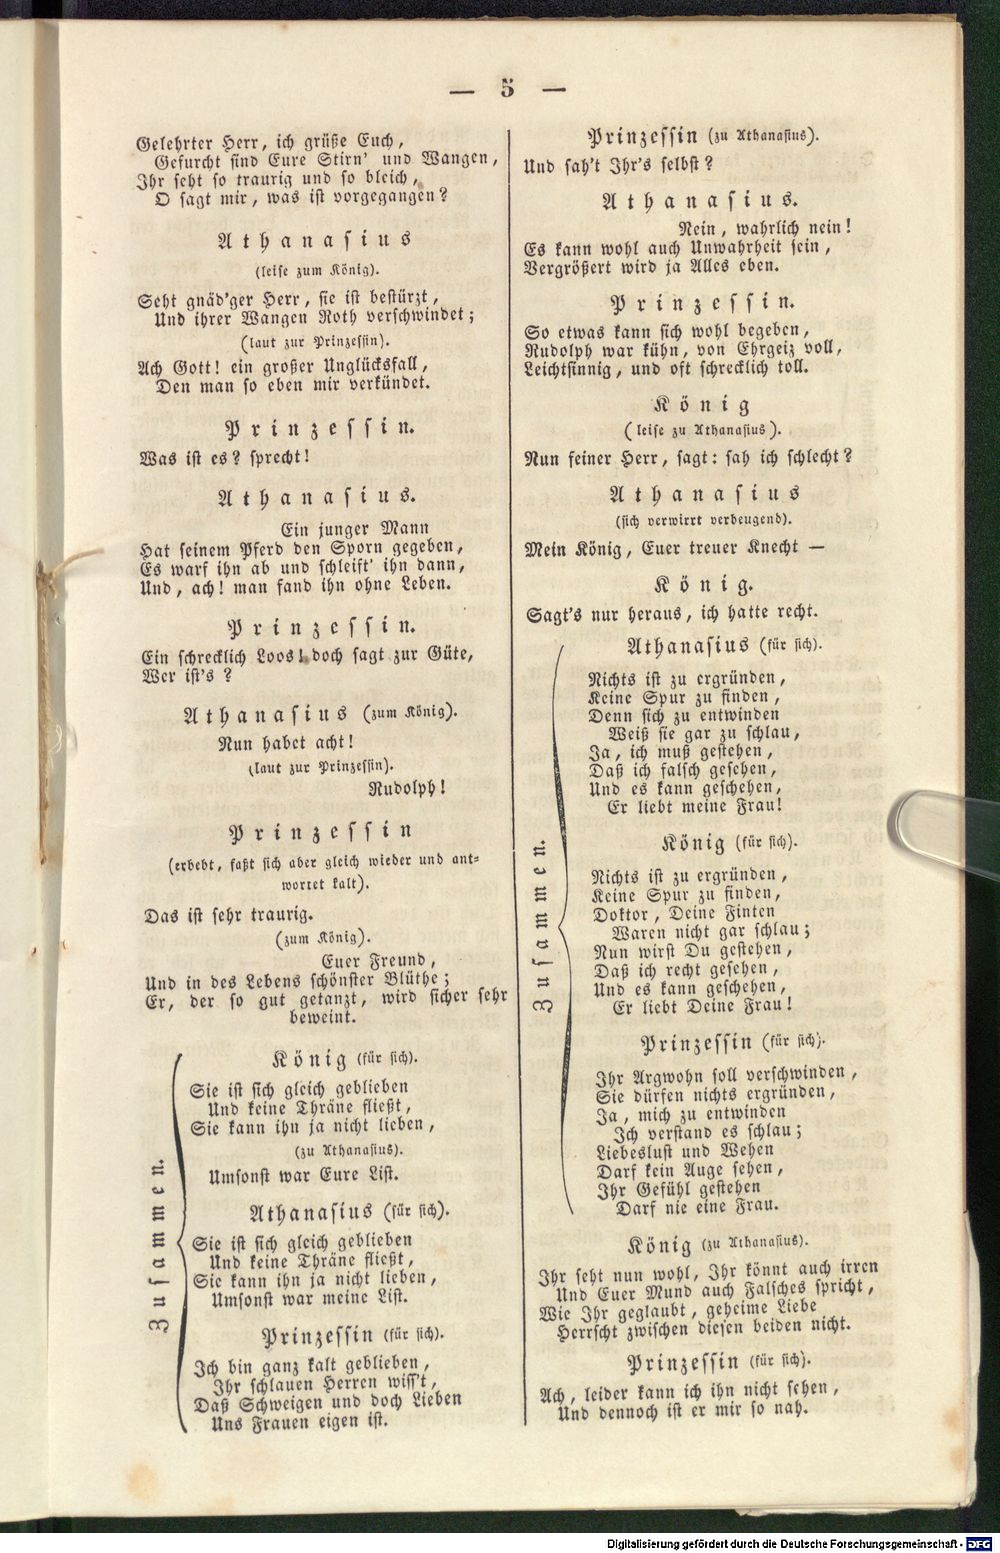 — 5 —
Gelehrter Herr, ich grüße Euch,
Gefurcht sind Eure Stirn' und Wangen,
Ihr seht so traurig und so bleich,
O sagt mir, was ist vorgegangen?
Athanasius
(leise zum König).
Seht gnäd'ger Herr, sie ist bestürzt,
Und ihrer Wangen Roth verschwindet;
(laut zur Prinzessin).
Ach Gott! ein großer Unglücksfall,
Den man so eben mir verkündet.
Prinzessin.
Was ist es? sprecht!
Athanasius.
Ein junger Mann
Hat seinem Pferd den Sporn gegeben,
Es warf ihn ab und schleift' ihn dann,
Und, ach! man fand ihn ohne Leben.
Prinzessin.
Ein schrecklich Loos! doch sagt zur Güte,
Wer ist's?
Athanasius (zum König).
Nun habet acht!
(laut zur Prinzessin).
Rudolph!
Prinzessin
(erbebt, faßt sich aber gleich wieder und ant-
wortet kalt).
Das ist sehr traurig.
(zum König).
Euer Freund,
Und in des Lebens schönster Blüthe;
Er, der so gut getanzt, wird sicher sehr
beweint.
Zusammen.
König (für sich).
Sie ist sich gleich geblieben
Und keine Thräne fließt,
Sie kann ihn ja nicht lieben,
(zu Athanasius).
Umsonst war Eure List.
Athanasius (für sich).
Sie ist sich gleich geblieben
Und keine Thräne fließt,
Sie kann ihn ja nicht lieben,
Umsonst war meine List.
Prinzessin (für sich).
Ich bin ganz kalt geblieben,
Ihr schlauen Herren wiss't,
Daß Schweigen und doch Lieben
Uns Frauen eigen ist.
Prinzessin (zu Athanasius).
Und sah't Ihr's selbst?
Athanasius.
Nein, wahrlich nein!
Es kann wohl auch Unwahrheit sein,
Vergrößert wird ja Alles eben.
Prinzessin.
So etwas kann sich wohl begeben,
Rudolph war kühn, von Ehrgeiz voll,
Leichtsinnig, und oft schrecklich toll.
König
(leise zu Athanasius).
Nun feiner Herr, sagt: sah ich schlecht?
Athanasius
(sich verwirrt verbeugend).
Mein König, Euer treuer Knecht —
König.
Sagt's nur heraus, ich hatte recht.
Zusammen.
Athanasius (für sich).
Nichts ist zu ergründen,
Keine Spur zu finden,
Denn sich zu entwinden
Weiß sie gar zu schlau,
Ja, ich muß gestehen,
Daß ich falsch gesehen,
Und es kann geschehen,
Er liebt meine Frau!
König (für sich).
Nichts ist zu ergründen,
Keine Spur zu finden,
Doktor, Deine Finten
Waren nicht gar schlau;
Nun wirst Du gestehen,
Daß ich recht gesehen,
Und es kann geschehen,
Er liebt Deine Frau!
Prinzessin (für sich).
Ihr Argwohn soll verschwinden,
Sie dürfen nichts ergründen,
Ja, mich zu entwinden
Ich verstand es schlau;
Liebeslust und Wehen
Darf kein Auge sehen,
Ihr Gefühl gestehen
Darf nie eine Frau.
König (zu Athanasius).
Ihr seht nun wohl, Ihr könnt auch irren
Und Euer Mund auch Falsches spricht,
Wie Ihr geglaubt, geheime Liebe
Herrscht zwischen diesen beiden nicht.
Prinzessin (für sich).
Ach, leider kann ich ihn nicht sehen,
Und dennoch ist er mir so nah.
Digitalisierung gefördert durch die Deutsche Forschungsgemeinschaft - DFG